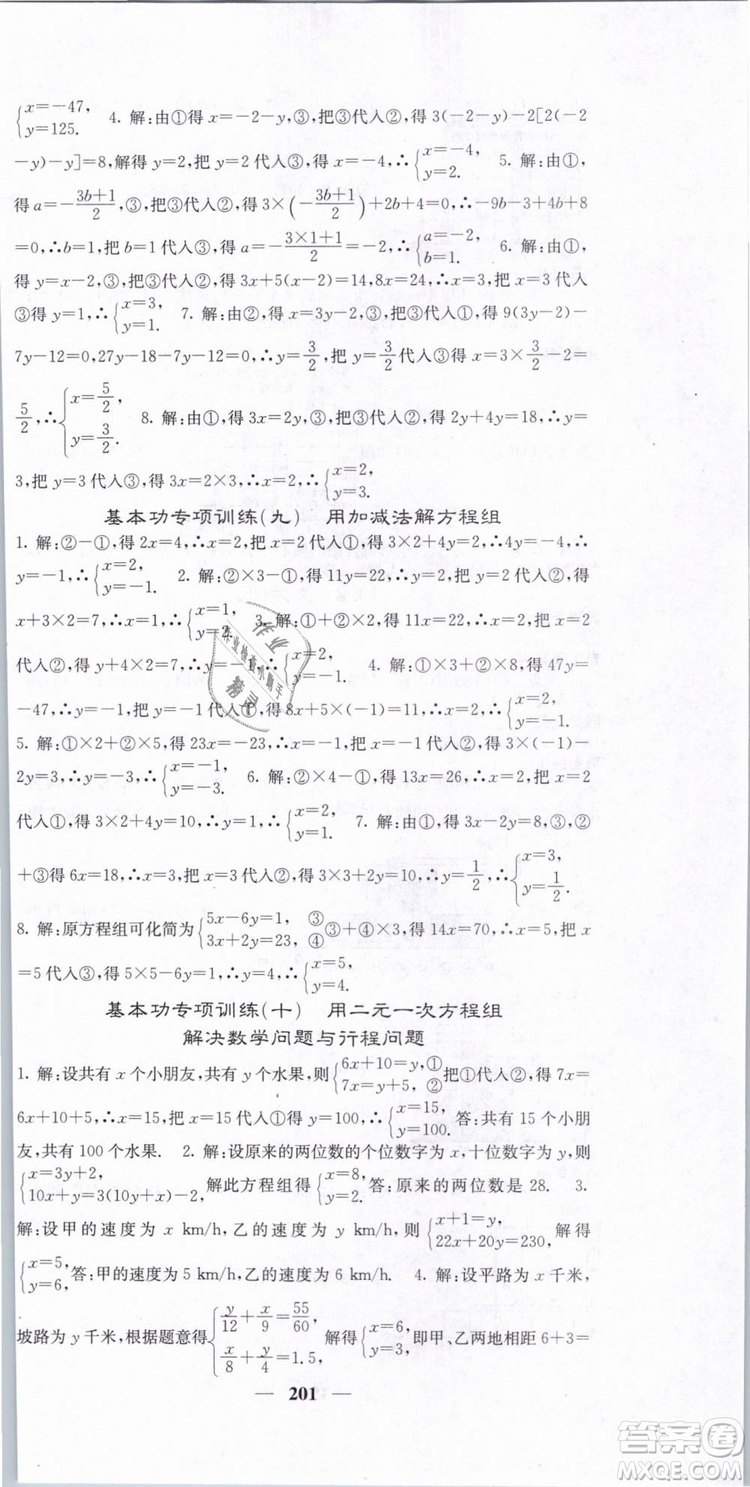 {x=-47, y=125. 4. 解:由①得 x=-2-y,③把③代入②,得 3(-2-y)-2[2(-2
-y)-y]=8,解得 y=2,把 y=2 代入③,得 x=-4,∴{x=-4, y=2. 5. 解:由①,
得 a=-(3b+1)/2,③,把③代入②,得 3×(-(3b+1)/2)+2b+4=0,∴-9b-3+4b+8
=0,∴b=1,把 b=1 代入③,得 a=-(3×1+1)/2=-2,∴{a=-2, b=1. 6. 解:由①,
得 y=x-2,③,把③代入②,得 3x+5(x-2)=14,8x=24,∴x=3,把 x=3 代入
③得 y=1,∴{x=3, y=1. 7. 解:由②,得 x=3y-2,③,把③代入①,得 9(3y-2)-
7y-12=0,27y-18-7y-12=0,∴y=3/2,把 y=3/2代入③得 x=3×3/2-2=
5/2,∴{x=5/2, y=3/2. 8. 解:由①,得 3x=2y,③,把③代入②,得 2y+4y=18,∴y=
3,把 y=3 代入③,得 3x=2×3,∴x=2,∴{x=2, y=3.
基本功专项训练(九) 用加减法解方程组
1. 解:②-①,得 2x=4,∴x=2,把 x=2 代入①,得 3×2+4y=2,∴4y=-4,∴
y=-1,∴{x=2, y=-1. 2. 解:②×3-①,得 11y=22,∴y=2,把 y=2 代入②,得
x+3×2=7,∴x=1,∴{x=1, y=2. 3. 解:①+②×2,得 11x=22,∴x=2,把 x=2
代入②,得 y+4×2=7,∴y=-1,∴{x=2, y=-1. 4. 解:①×4-②,得 47y=
-47,∴y=-1,把 y=-1 代入①,得 8x+5×(-1)=11,∴x=2,∴{x=2, y=-1.
5. 解:①×2+②×5,得 23x=-23,∴x=-1,把 x=-1 代入②,得 3×(-1)-
2y=3,∴y=-3,∴{x=-1, y=-3. 6. 解:①×2+②,得 13x=26,∴x=2,把 x=2
代入②,得 3×2+4y=10,∴y=1,∴{x=2, y=1. 7. 解:①×4,得 3x-2y=8,③,②
+③得 6x=18,∴x=3,把 x=3 代入②,得 3×3+2y=10,∴y=1/2,∴{x=3, y=1/2.
8. 解:原方程组可化简为{5x-6y=1, ③ 3x+2y=23, ④ ③+④×3,得 14x=70,∴x=5,把 x
=5 代入③,得 5×5-6y=1,∴y=4,∴{x=5, y=4.
基本功专项训练(十) 用二元一次方程组
解决数学问题与行程问题
1. 解:设共有 x 个小朋友,有 y 个水果,则{6x+10=y,① 7x=y+5, ②把①代入②,得 7x=
6x+10+5,∴x=15,把 x=15 代入①,得 y=100,∴{x=15, y=100. 答:共有 15 个小朋
友,共有 100 个水果. 2. 解:设原来的两位数的个位数字为 x,十位数字为 y,则
{x=3y+2, 10x+y=3(10y+x)-2, 解此方程组得{x=8, y=2. 答:原来的两位数是 28. 3.
解:设甲的速度为 x km/h,乙的速度为 y km/h,则{x+1=y, 22x+20y=230, 解得
{x=5, y=6,答:甲的速度为 5 km/h,乙的速度为 6 km/h. 4. 解:设平路为 x 千米,
坡路为 y 千米,根据题意得{y/12+x/9=55/60, x/8+y/4=1.5, 解得{x=6, y=3,即甲、乙两地相距 6+3=
— 201 —
答案圈
MXQE.COM